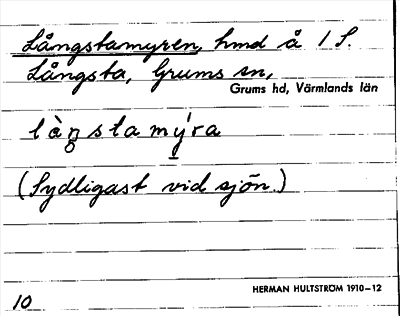 Långstamyren, hmd å 1 S.
Långsta, Grums sn,
Grums hd, Värmlands län
làŋstamý̱ra
(Sydligast vid sjön.)
HERMAN HULTSTRÖM 1910–12
10